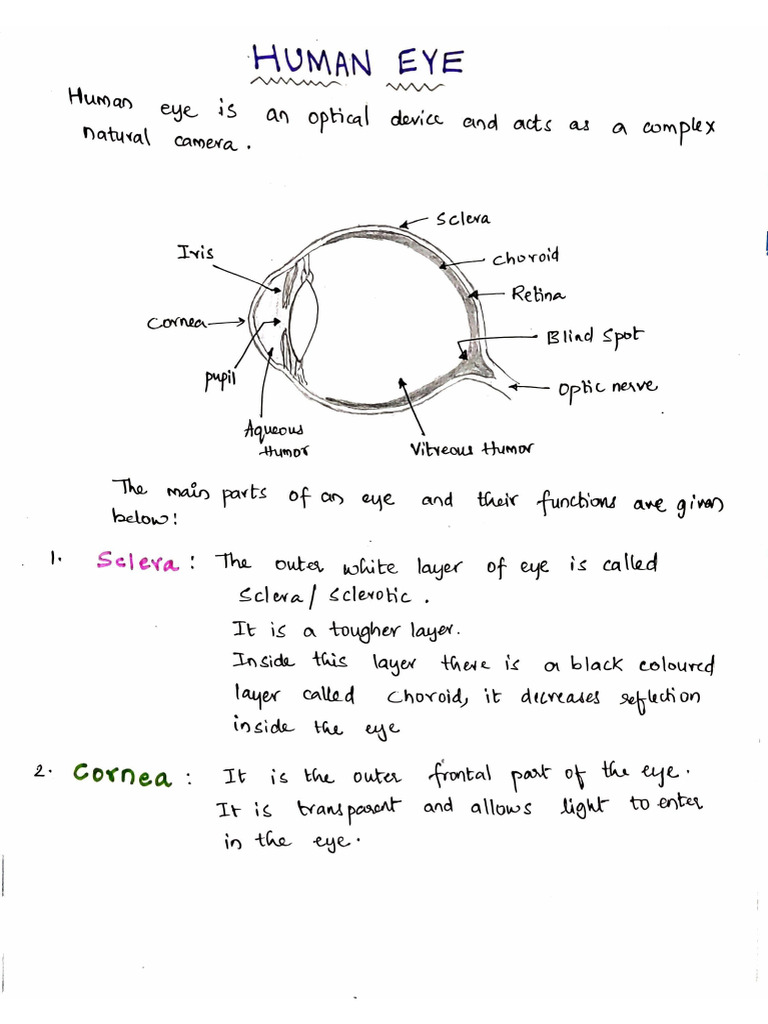 HUMAN EYE
Human eye is an optical device and acts as a complex
natural camera.
Sclera
Iris
Choroid
Retina
Cornea
Blind Spot
pupil
Optic nerve
Aqueous
Humor
Vitreous Humor
The main parts of an eye and their functions are given
below:
1. Sclera: The outer white layer of eye is called
Sclera/ Sclerotic.
It is a tougher layer.
Inside this layer there is a black coloured
layer called Choroid, it decreases reflection
inside the eye
2. Cornea: It is the outer frontal part of the eye.
It is transparent and allows light to enter
in the eye.